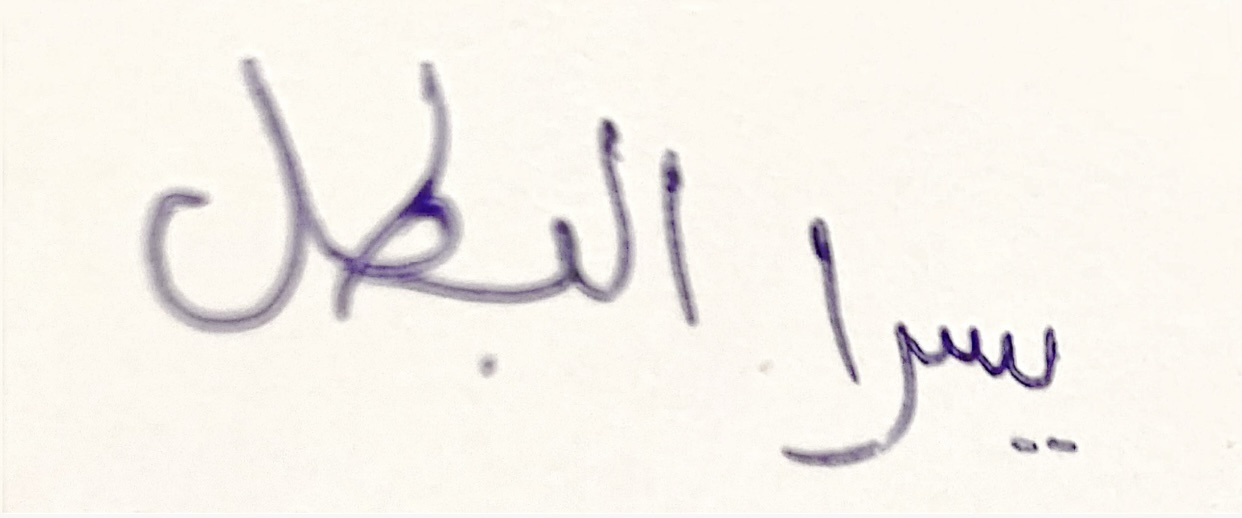 يسرا البطل